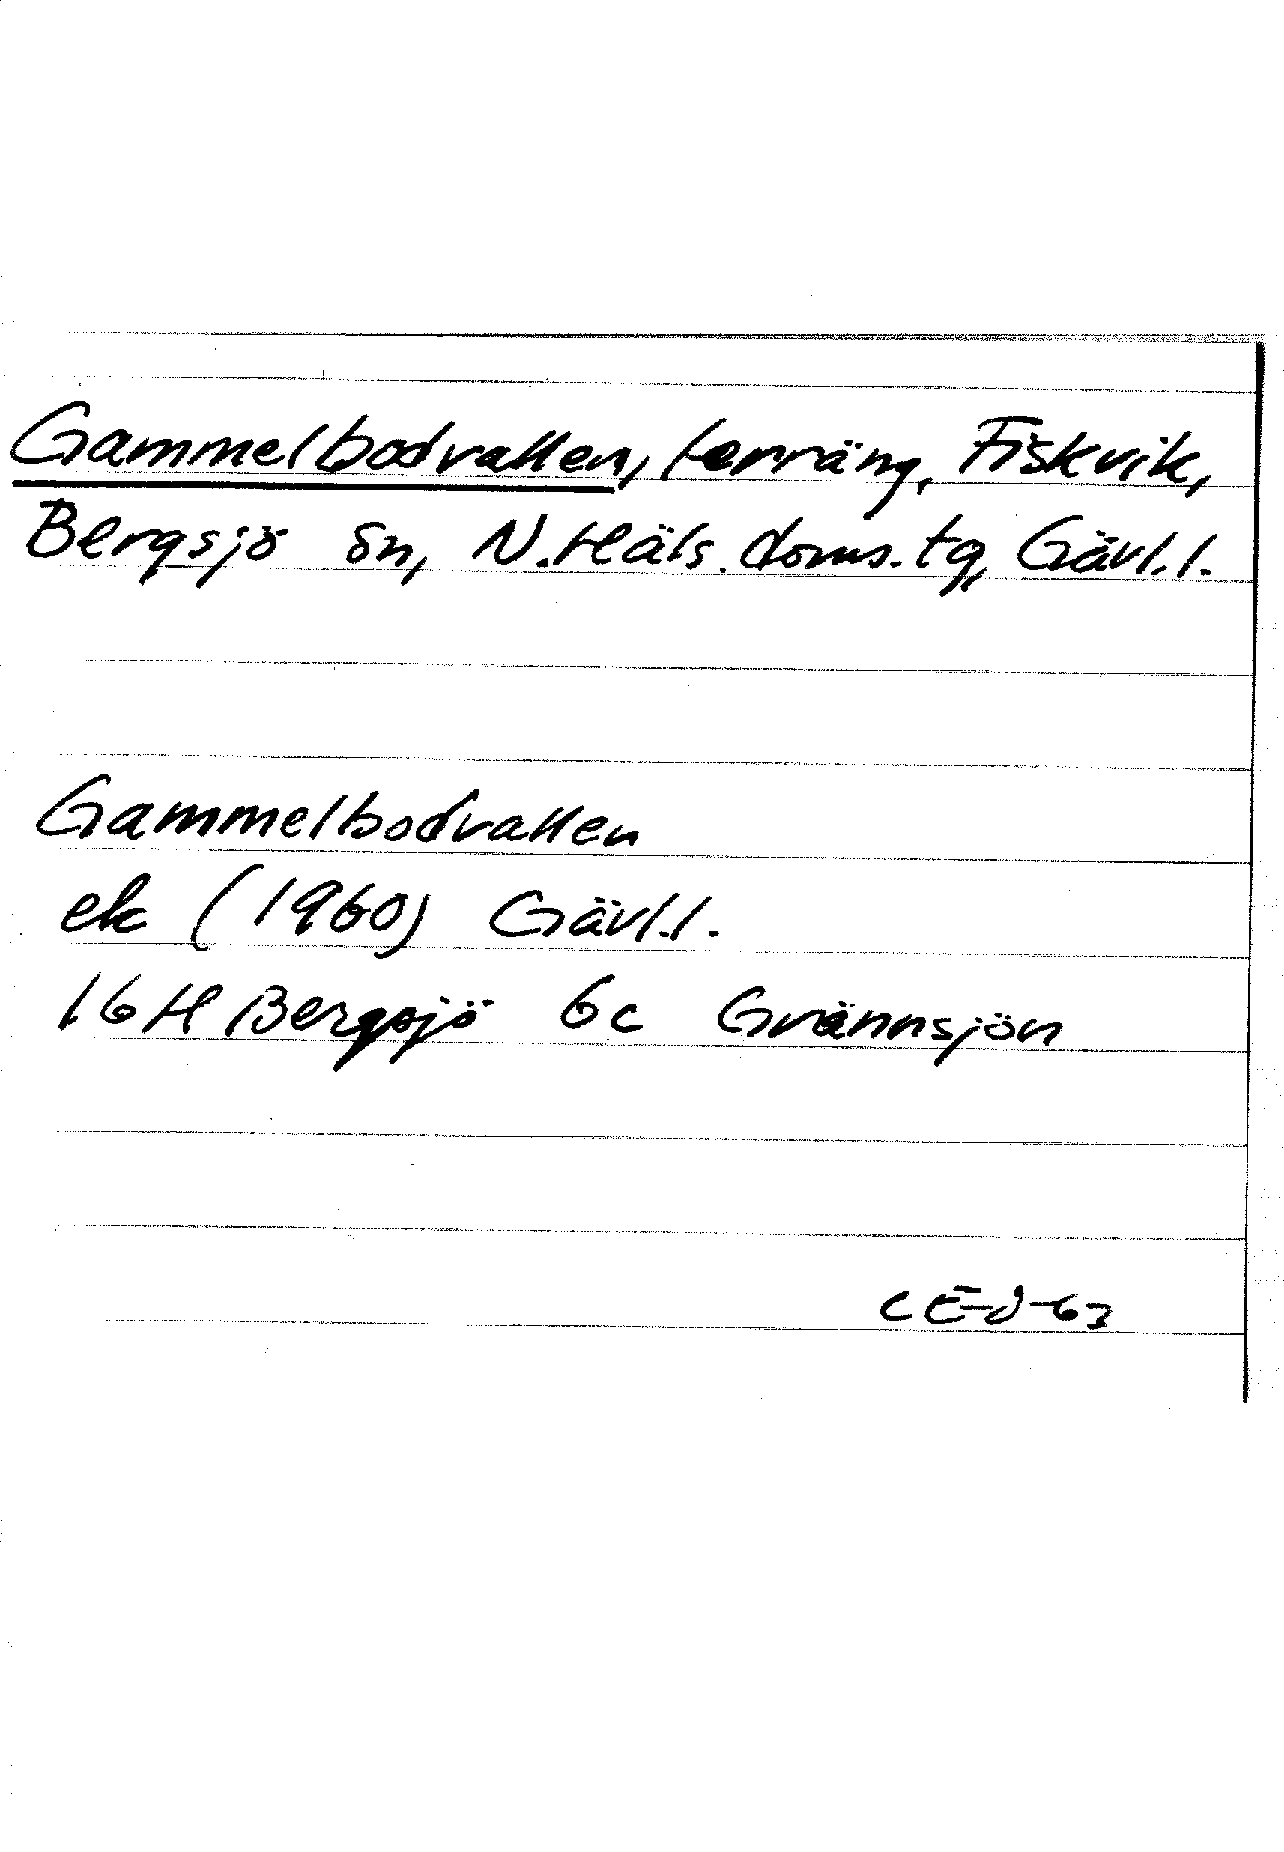 Gammelbodvallen, terräng, Fiskvik,
Bergsjö sn, N.Häls.doms.tg, Gävl.l.
Gammelbodvallen
ek (1960) Gävl.l.
16H Bergsjö 6c Grännsjön
CE-J-63